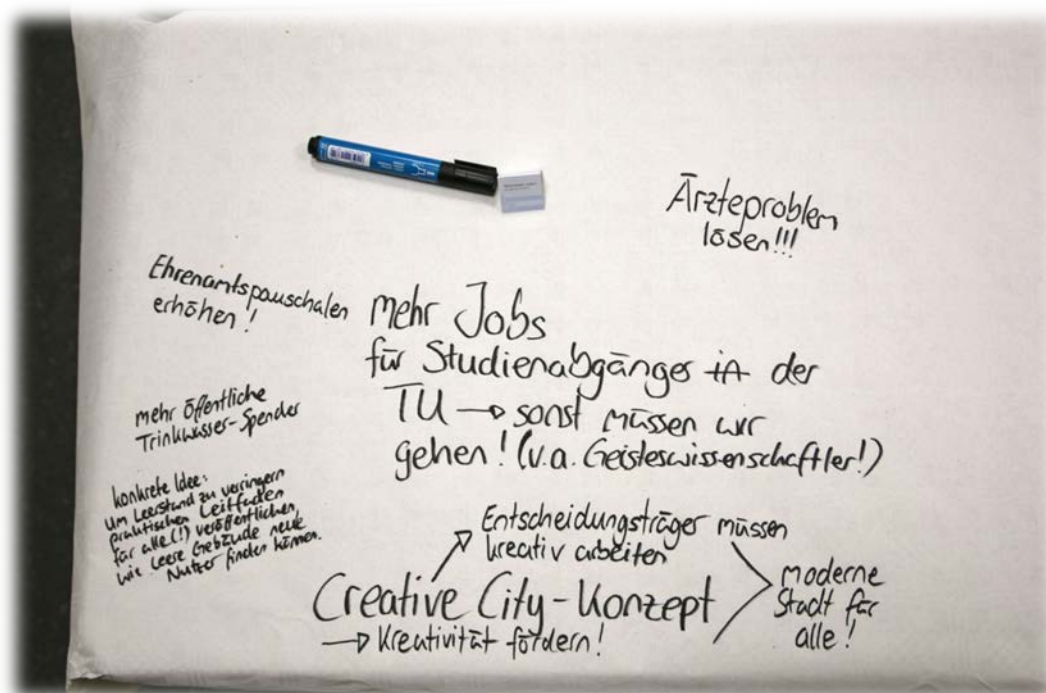 Ärzteproblem
lösen!!!
Ehrenamtspauschalen
erhöhen!
mehr Jobs
für Studienabgänger in der
TU → sonst müssen wir
gehen! (v.a. Geisteswissenschaftler!)
mehr öffentliche
Trinkwasser-Spender
konkrete Idee:
Um Leerstand zu verringern
praktischen Leitfaden
für alle(!) veröffentlichen,
wie leere Gebäude neue
Nutzer finden können.
Entscheidungsträger müssen
kreativ arbeiten
Creative City-Konzept
→ Kreativität fördern!
moderne
Stadt für
alle!